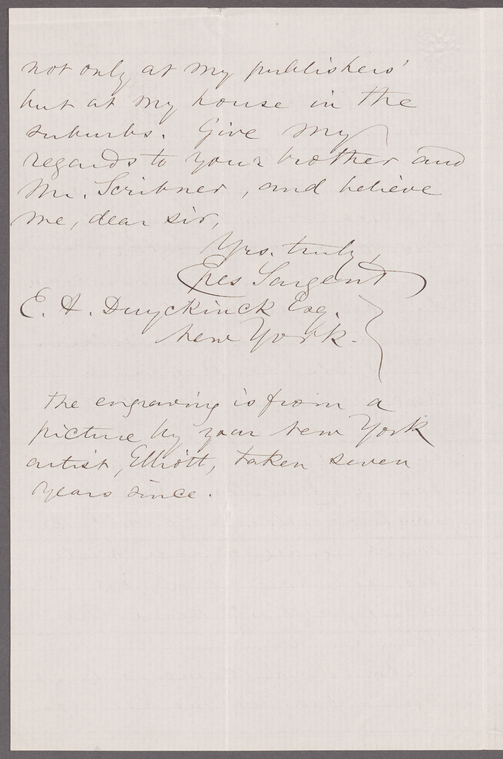 not only at my publishers'
but at my house in the
suburbs. Give my
regards to your brother and
Mr. Scribner, and believe
me, dear sir,
Yrs. truly,
Epes Sargent
E. A. Duyckinck Esq.
New York.
The engraving is from a
picture by your New York
artist, Elliott, taken seven
years since.